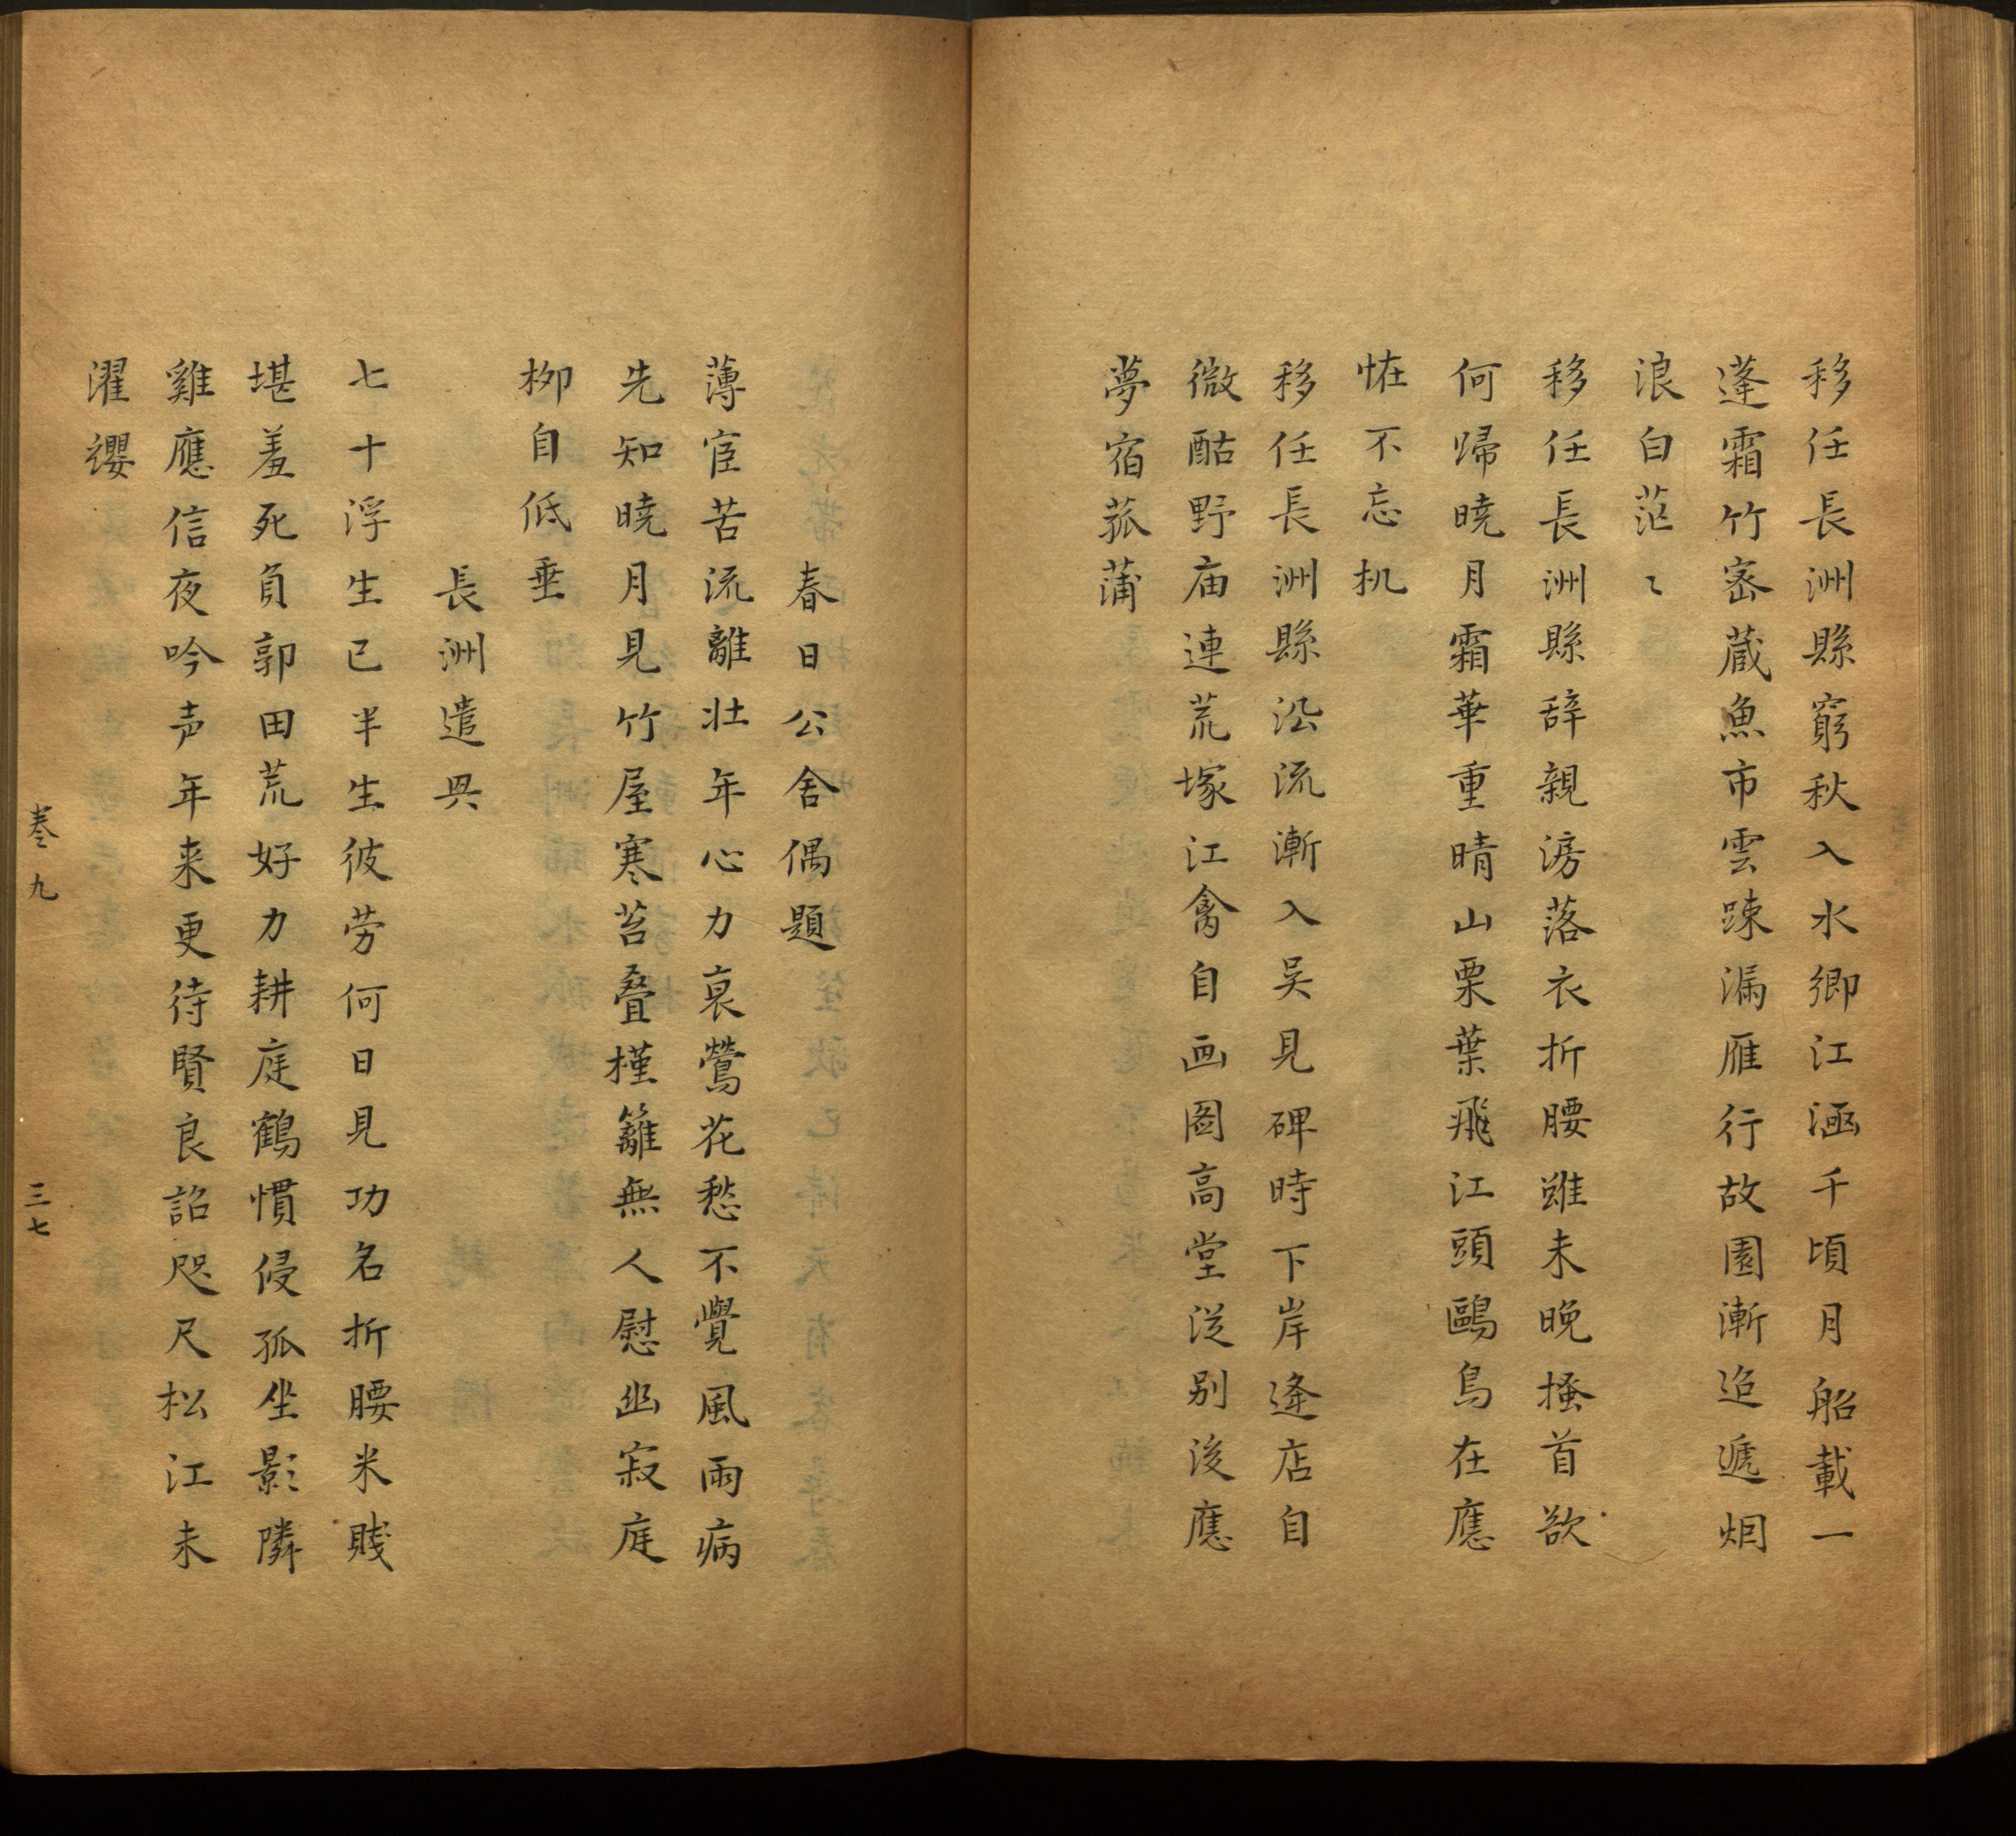 移任長洲縣窮秋入水鄉江涵千頃月船載一
蓬霜竹宻蔵魚市雲踈漏雁行故園漸迢遞烟
浪白茫〻
移任長洲縣辞親淚落衣折腰雖未晚搔首欲
何歸曉月霜華重晴山栗葉飛江頭鷗鳥在應
恠不忘机
移任長洲縣沿流漸入吴見碑時下岸逢店自
微酤野庙連荒塚江禽自画圖高堂従别後應
夢宿菰蒲
春日公舍偶題
薄宦苦流離壯年心力衰鶯花愁不覺風雨病
先知曉月見竹屋寒苔疊槿籬無人慰幽寂庭
栁自低垂
長洲遣興
七十浮生已半生彼劳何日見功名折腰米賤
堪羞死負郭田荒好力耕庭鶴慣侵孤坐影隣
雞應信夜吟声年来更待賢良詔咫尺松江未
濯纓
卷九
三七